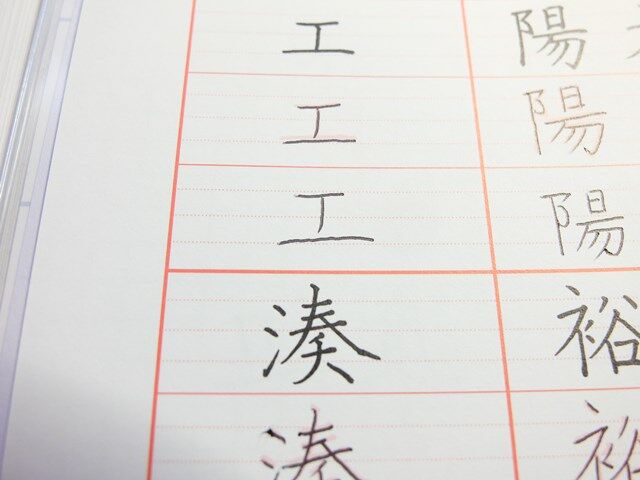 工 陽
工 陽
工 陽
湊 裕
湊 裕